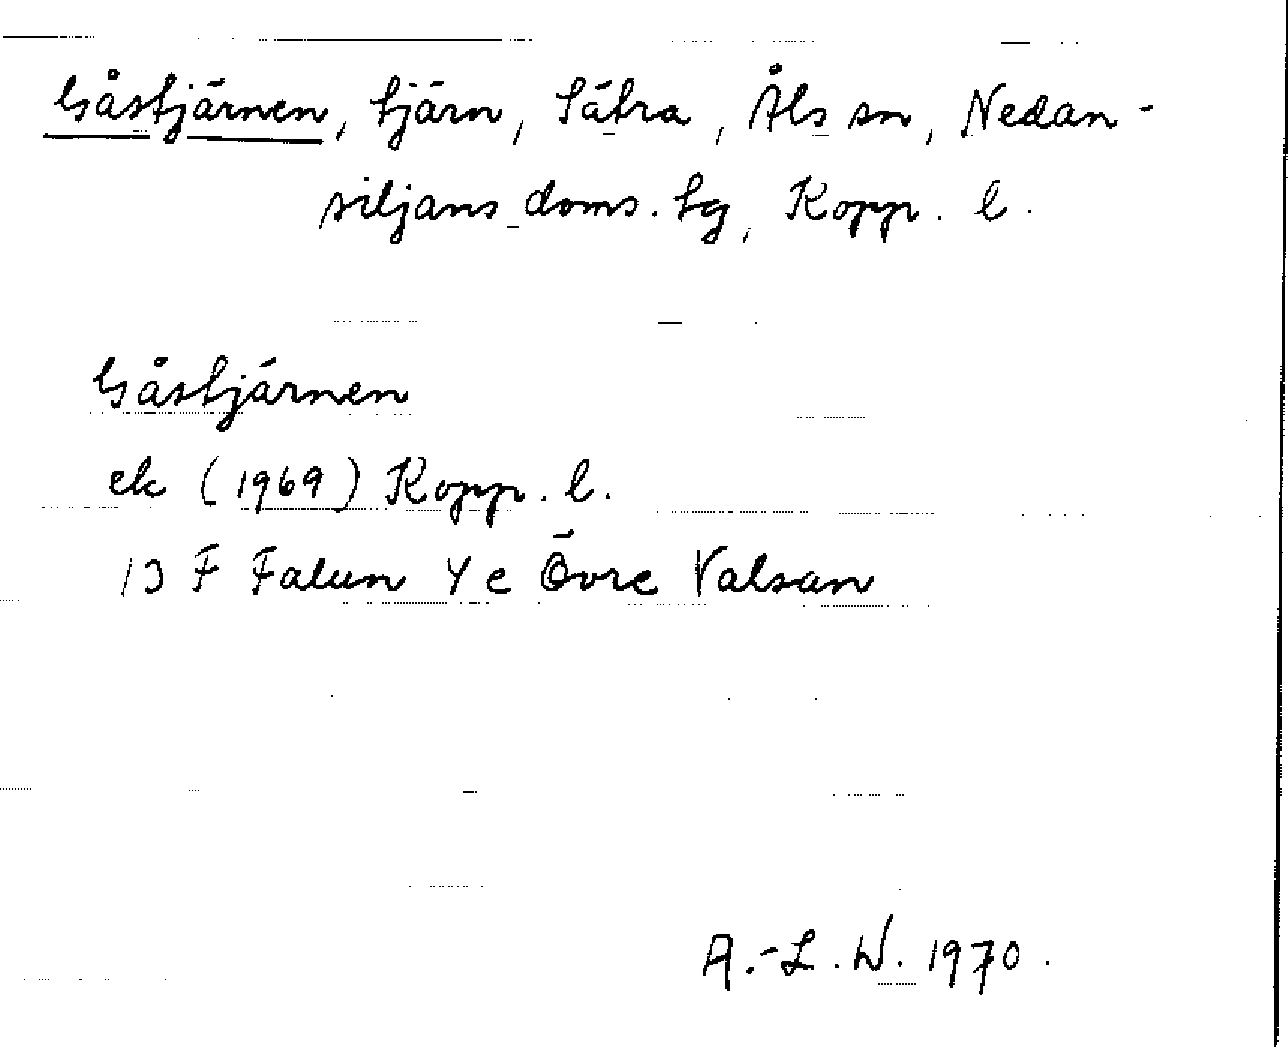 Gåstjärnen, tjärn, Sätra, Åls sn, Nedan-
siljans doms. tg, Kopp. l.
Gåstjärnen
ek (1969) Kopp. l.
13 F Falun 4 c Övre Valsan
A.-L. W. 1970.